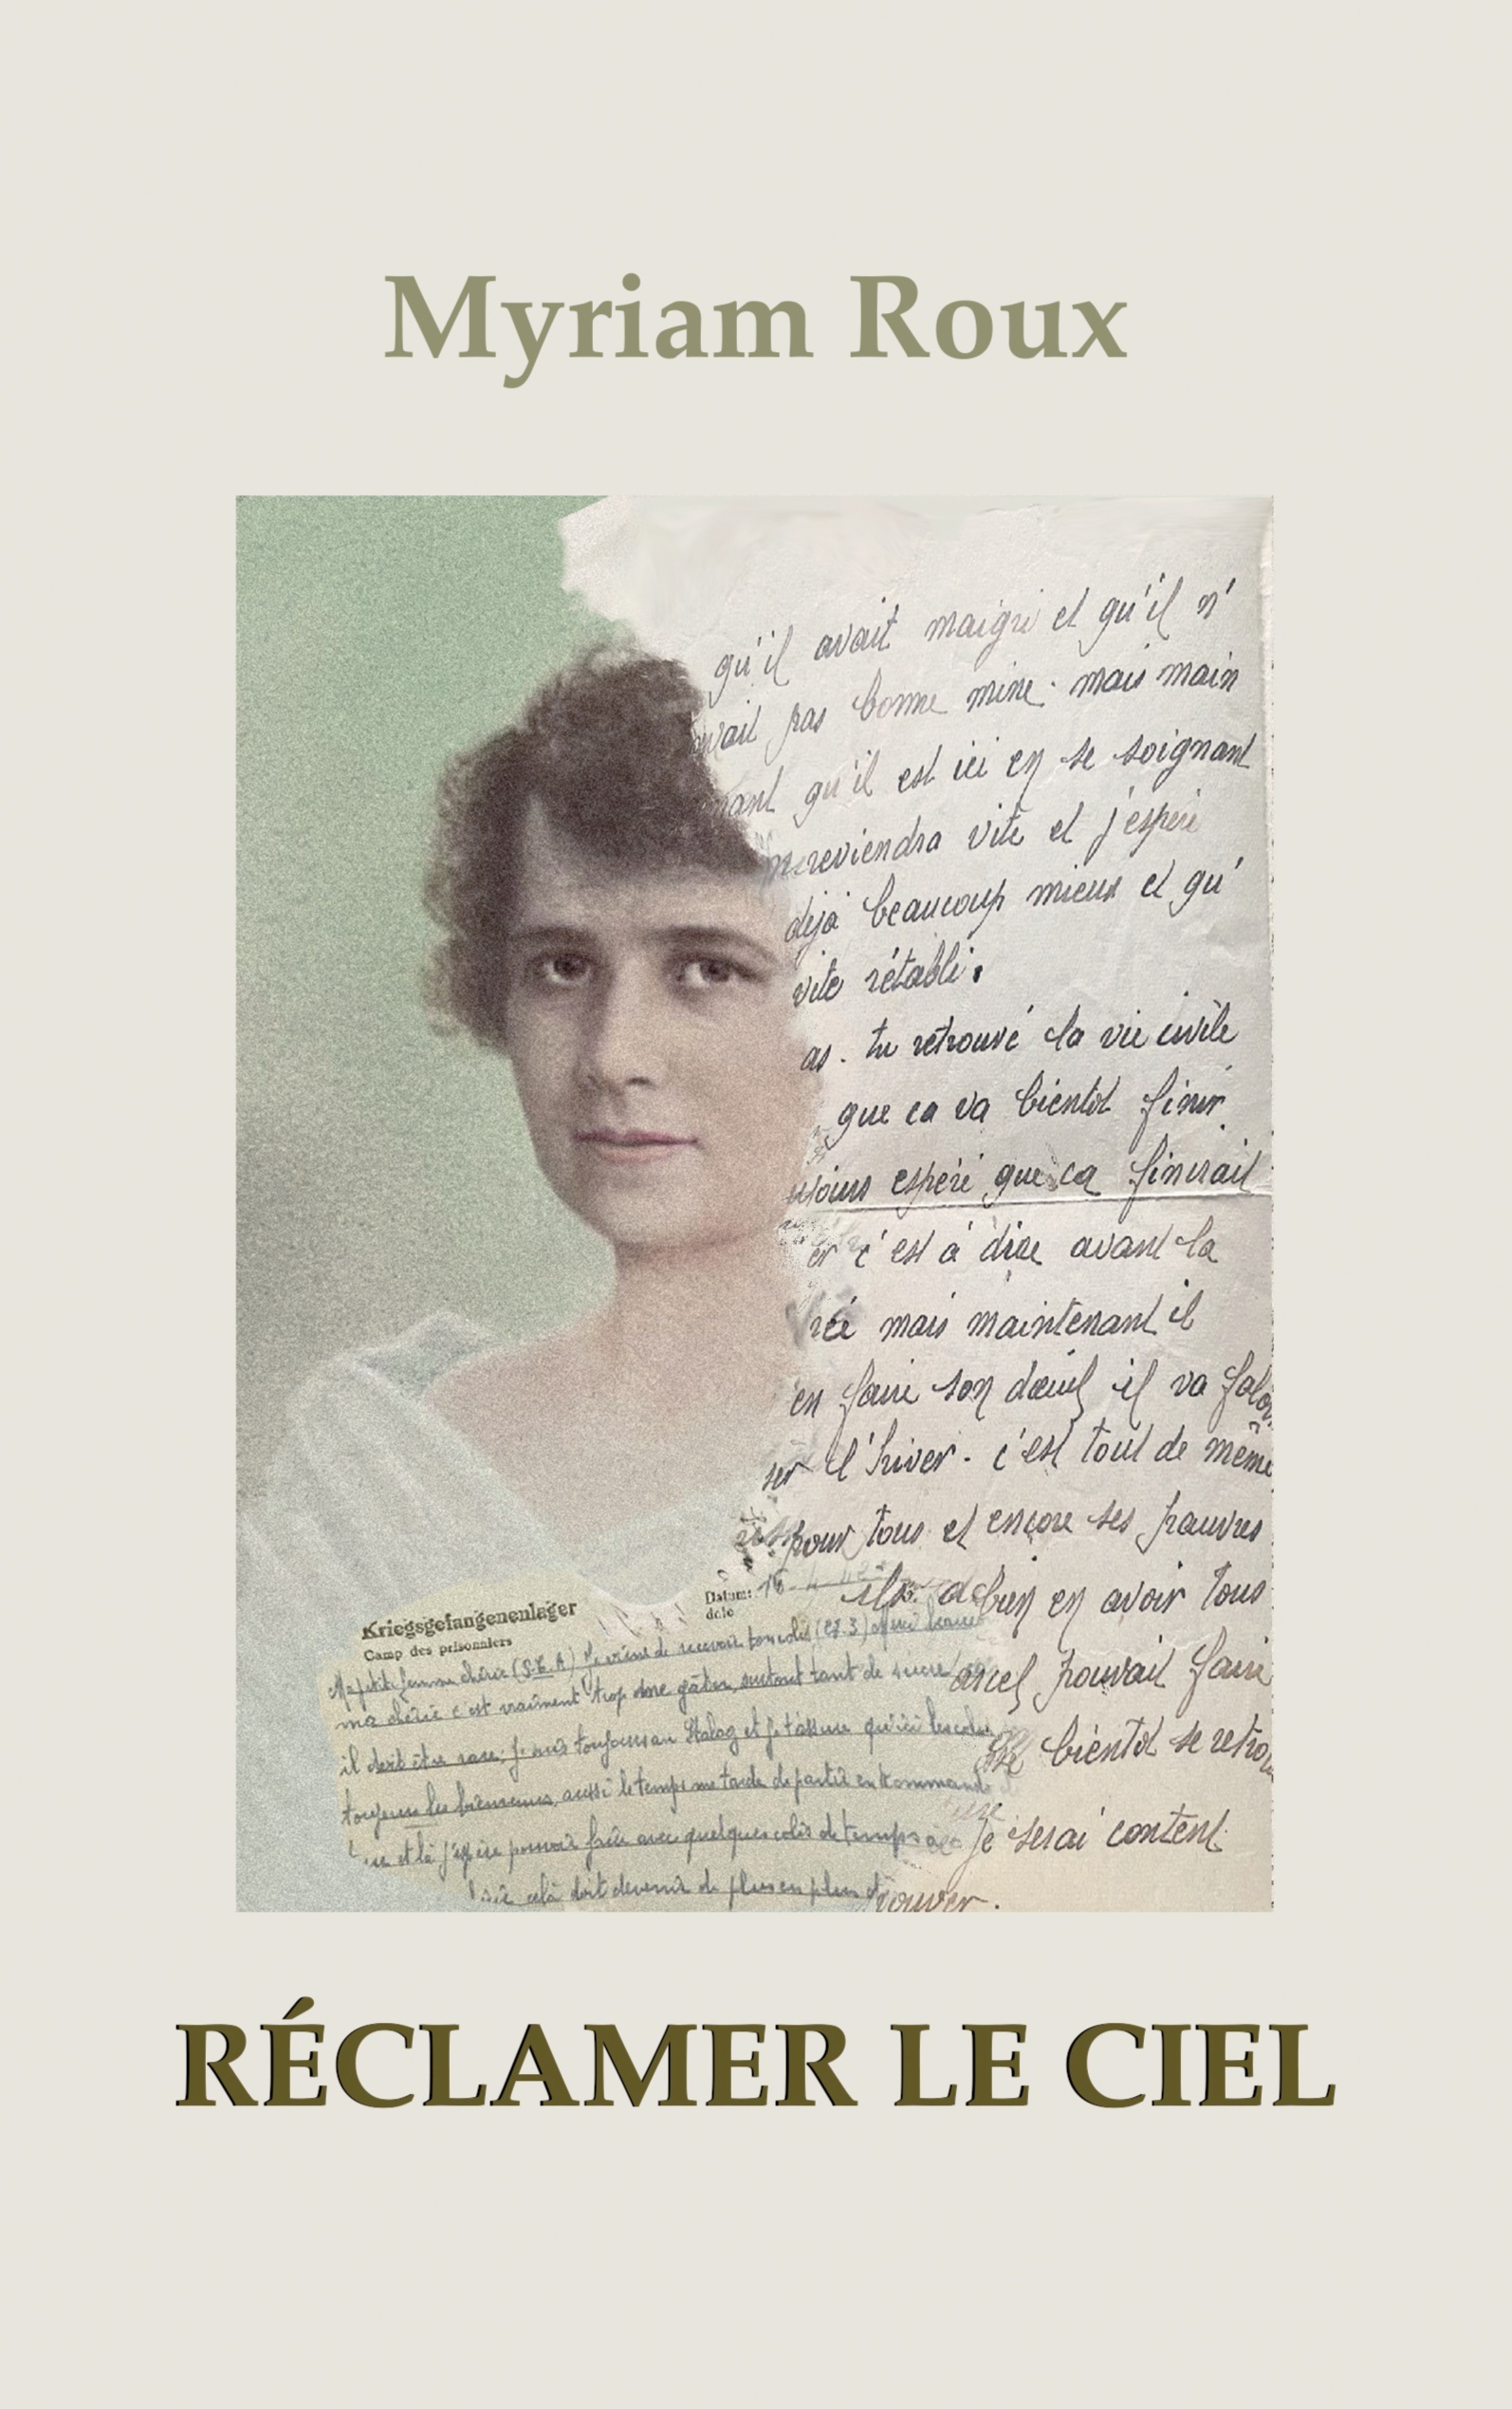 Myriam Roux
qu'il avait maigri et qu'il n'
avait pas bonne mine. mais main
nant qu'il est ici en se soignant
reviendra vite et j'espère
déjà beaucoup mieux et qu'
vite rétabli.
as-tu retrouvé la vie civile
que ca va bientôt finir.
espéré que ca finirait
er c'est à dire avant la
mais maintenant il
en faire son deuil il va faloir
ser l'hiver. c'est tout de même
pour tous et encore ses pauvres
bien en avoir tous
arcel pouvait faire
bientôt se retrou
Je serai content
rouver.
Kriegsgefangenenlager
Datum: 16-4-42
date
Camp des prisonniers
Ma petite femme chérie (S.E.A) Je viens de recevoir ton colis
ma chérie c'est vraiment trop me gâter, surtout tant de sucre
il doit être rare; je suis toujours au Stalag et je t'assure qu'ici les colis
toujours les bienvenus, aussi le temps me tarde de partir en Kommando
et là j'espère pouvoir faire avec quelques colis de temps
cela doit devenir de plus en plus
RÉCLAMER LE CIEL